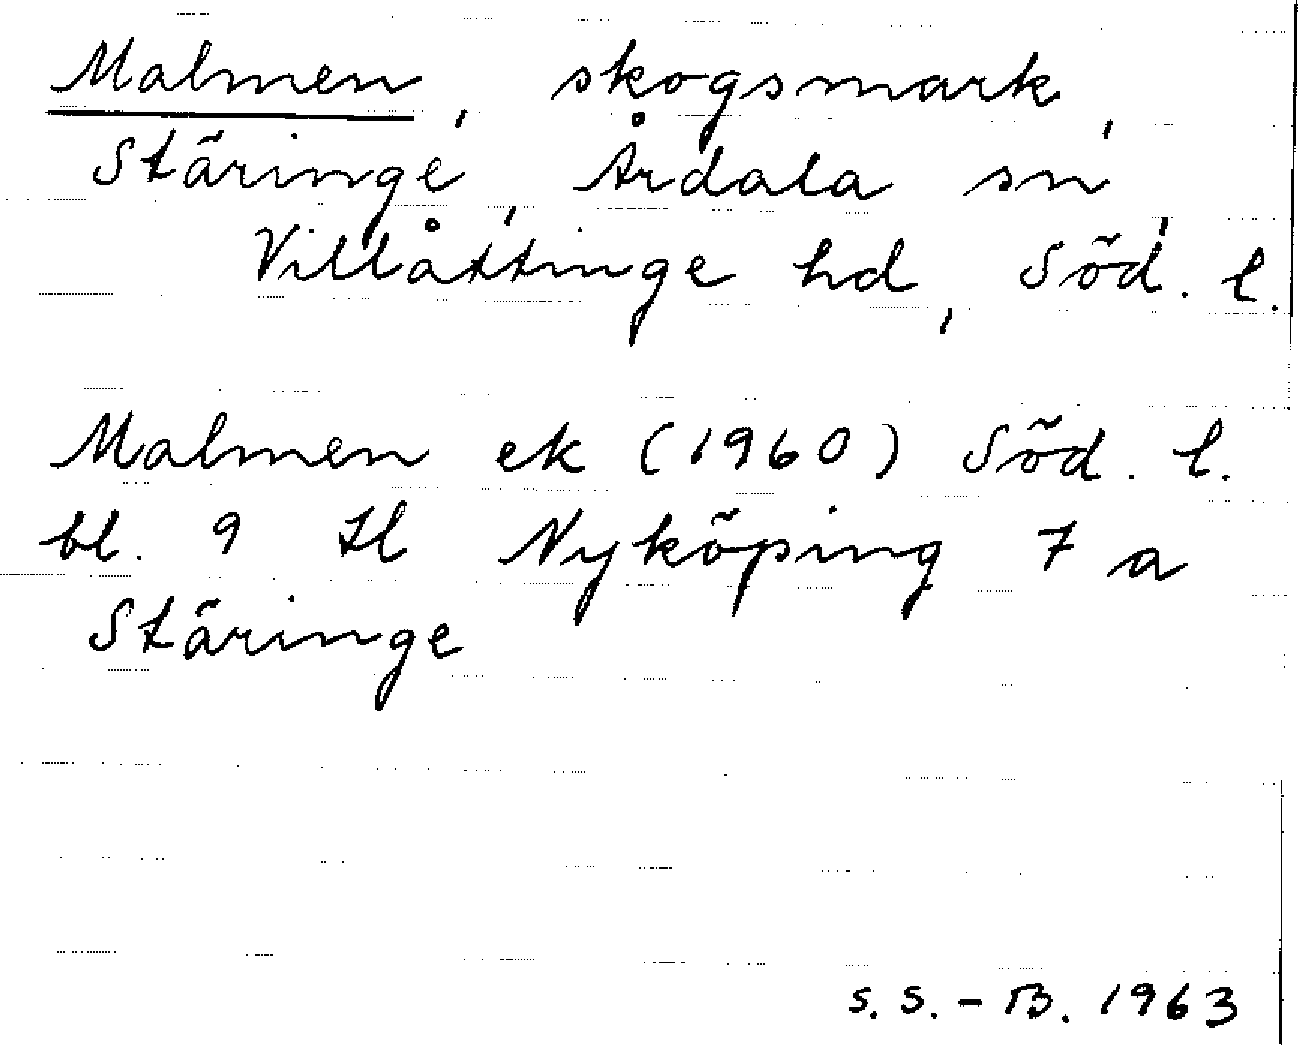 Malmen, skogsmark,
Stäringe, Årdala sn,
Villåttinge hd, Söd. l.
Malmen ek (1960) Söd. l.
bl. 9 Il Nyköping 7 a
Stäringe
S. S. - B. 1963